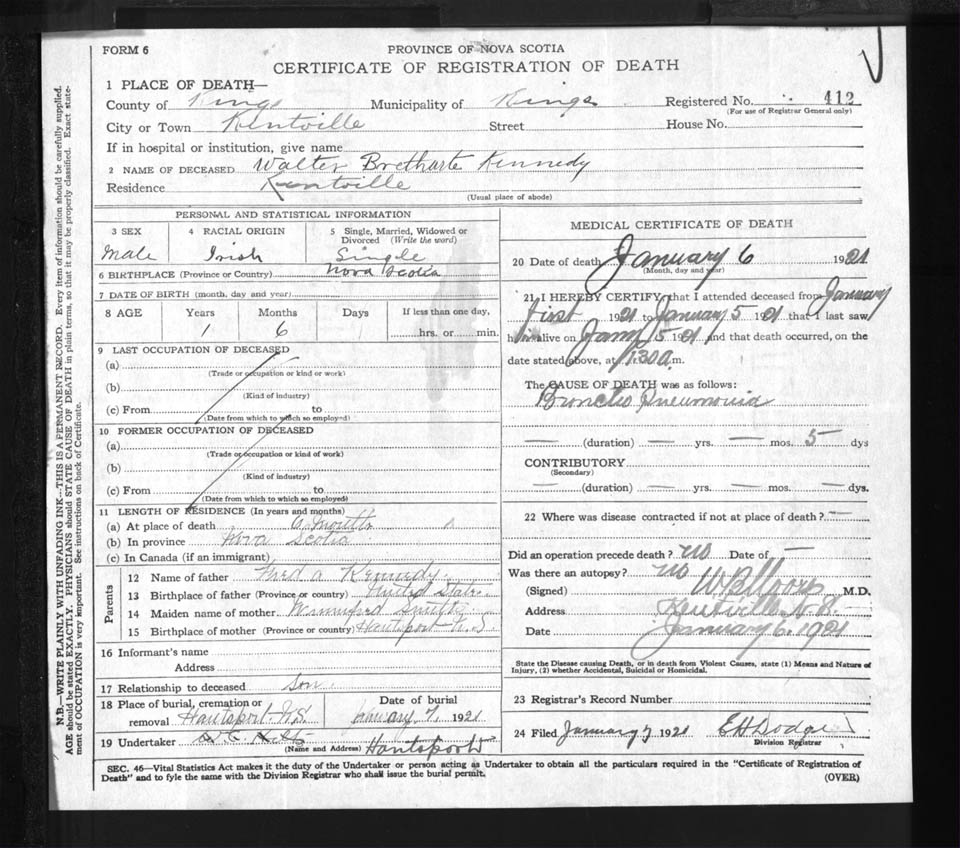 FORM 6
PROVINCE OF NOVA SCOTIA
CERTIFICATE OF REGISTRATION OF DEATH
1 PLACE OF DEATH—
County of Kings Municipality of Kings Registered No. 412
(For use of Registrar General only)
City or Town Kentville Street House No.
If in hospital or institution, give name
2 NAME OF DECEASED Walter Bretharte Kennedy
Residence Kentville
(Usual place of abode)
PERSONAL AND STATISTICAL INFORMATION
3 SEX 4 RACIAL ORIGIN 5 Single, Married, Widowed or Divorced (Write the word)
Male Irish Single
6 BIRTHPLACE (Province or Country) Nova Scotia
7 DATE OF BIRTH (month, day and year)
8 AGE Years Months Days If less than one day,
1 6 hrs. or min.
9 LAST OCCUPATION OF DECEASED
(a)
(Trade or occupation or kind or work)
(b)
(Kind of industry)
(c) From to
(Date from which to which so employed)
10 FORMER OCCUPATION OF DECEASED
(a)
(Trade or occupation or kind of work)
(b)
(Kind of industry)
(c) From to
(Date from which to which so employed)
11 LENGTH OF RESIDENCE (In years and months)
(a) At place of death 6 months
(b) In province Nova Scotia
(c) In Canada (if an immigrant)
Parents
12 Name of father Fred A Kennedy
13 Birthplace of father (Province or country) United States
14 Maiden name of mother Winnifred Smith
15 Birthplace of mother (Province or country) Hantsport N.S.
16 Informant's name
Address
17 Relationship to deceased Son
18 Place of burial, cremation or removal Hantsport N.S. Date of burial January 7, 1921
19 Undertaker
(Name and Address) Hantsport
MEDICAL CERTIFICATE OF DEATH
20 Date of death January 6 1921
(Month, day and year)
21 I HEREBY CERTIFY that I attended deceased from January
first 1921 to January 5 1921 that I last saw
him alive on Jany 5 1921 and that death occurred, on the
date stated above, at 1.30 a.m.
The CAUSE OF DEATH was as follows:
Broncho Pneumonia
— (duration) — yrs. — mos. 5 dys
CONTRIBUTORY
(Secondary)
— (duration) — yrs. — mos. — dys.
22 Where was disease contracted if not at place of death? —
Did an operation precede death? no Date of —
Was there an autopsy? no
(Signed) M.D.
Address Kentville N.S.
Date January 6, 1921
State the Disease causing Death, or in death from Violent Causes, state (1) Means and Nature of
Injury, (2) whether Accidental, Suicidal or Homicidal.
23 Registrar's Record Number
24 Filed January 7 1921 E H Dodge
Division Registrar
SEC. 46—Vital Statistics Act makes it the duty of the Undertaker or person acting as Undertaker to obtain all the particulars required in the "Certificate of Registration of
Death" and to fyle the same with the Division Registrar who shall issue the burial permit.
(OVER)
N.B.—WRITE PLAINLY WITH UNFADING INK—THIS IS A PERMANENT RECORD. Every item of information should be carefully supplied.
AGE should be stated EXACTLY. PHYSICIANS should STATE CAUSE OF DEATH in plain terms, so that it may be properly classified. Exact state-
ment of OCCUPATION is very important. See instructions on back of Certificate.